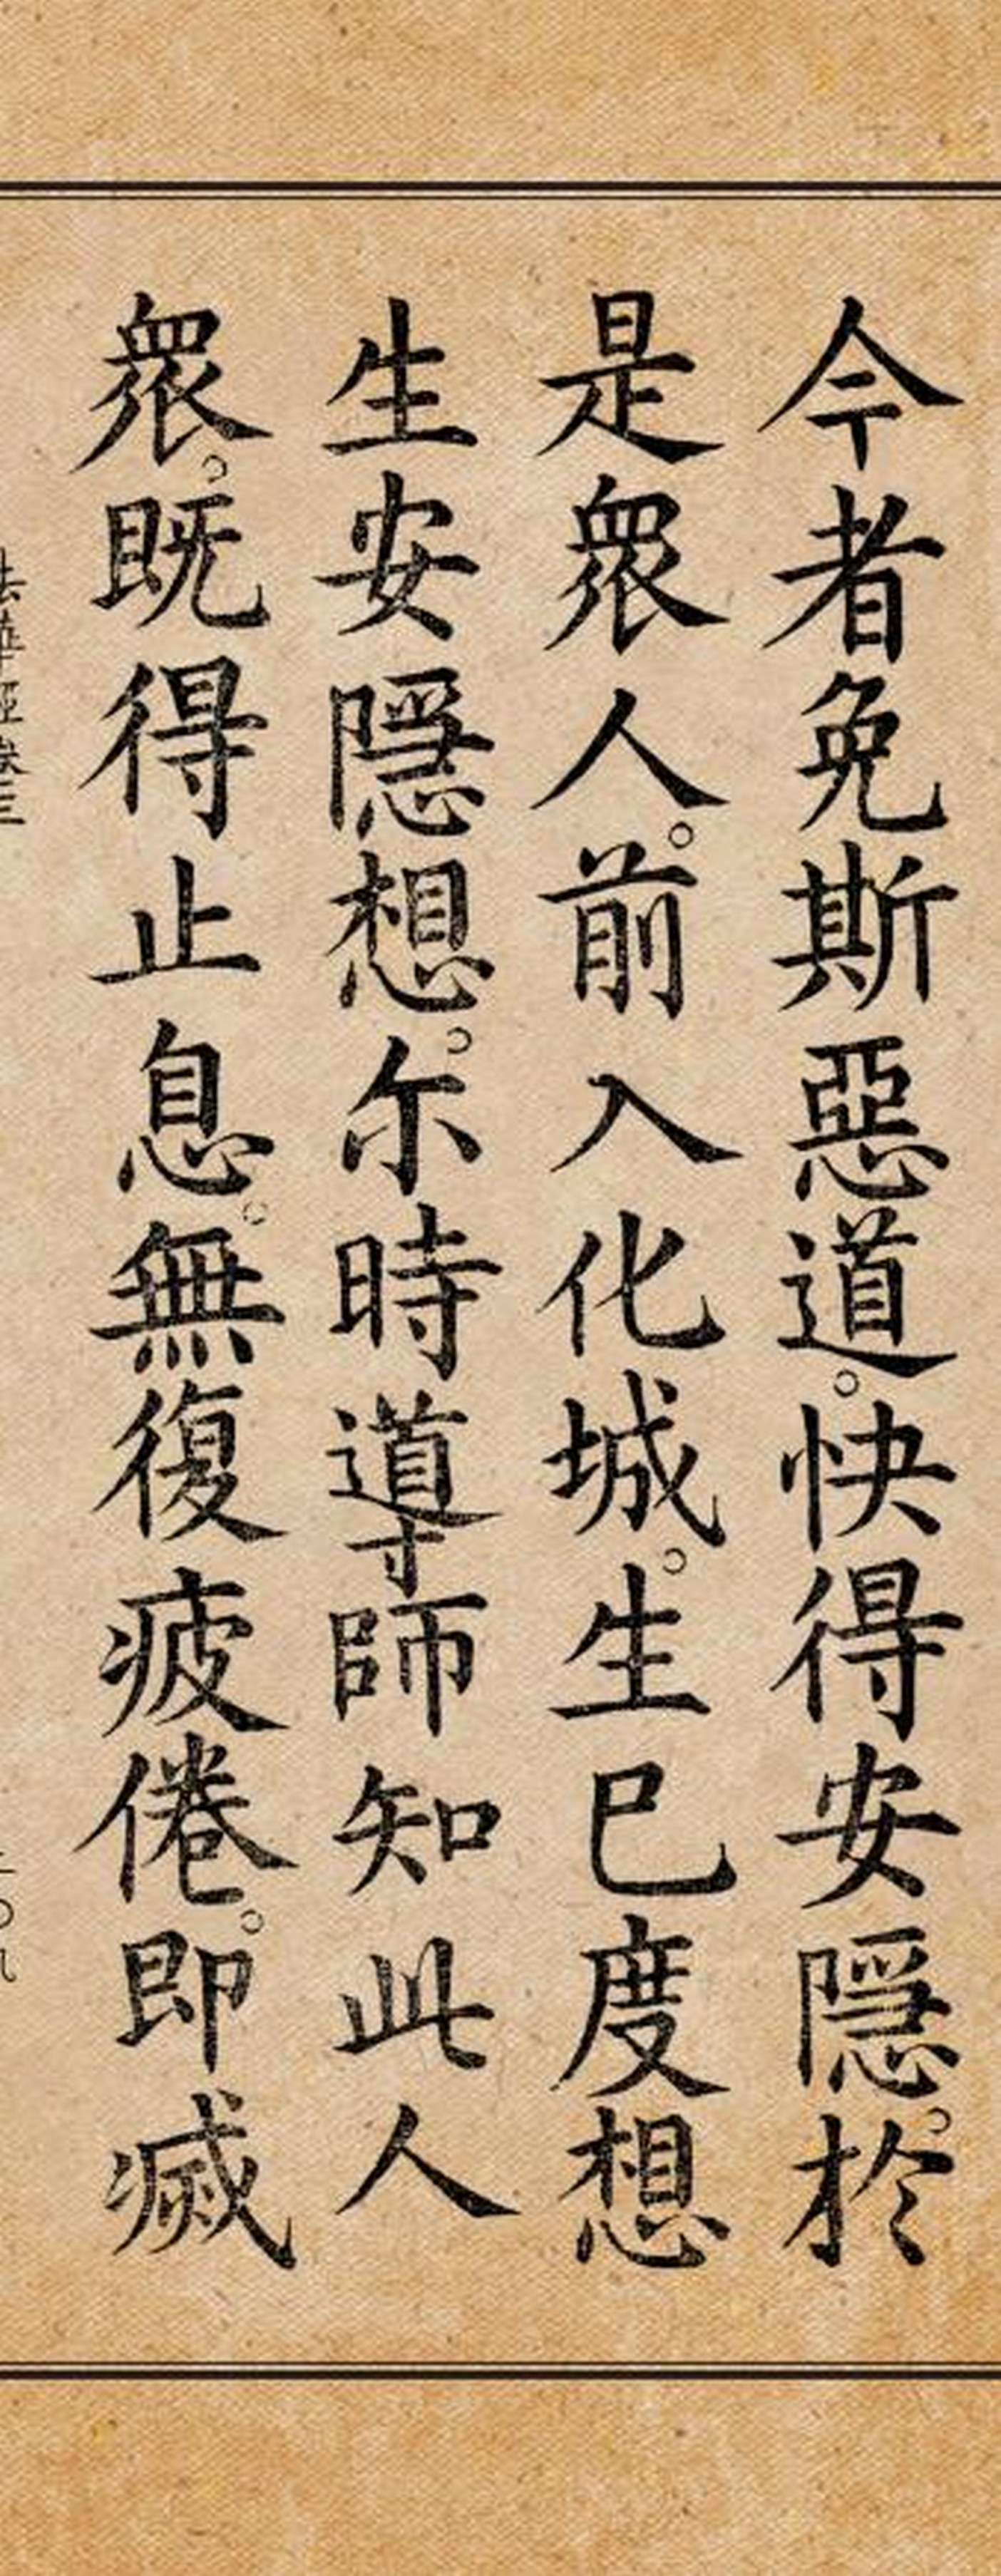 今者免斯惡道。快得安隱。於
是衆人。前入化城。生已度想
生安隱想。尒時導師知此人
衆。既得止息。無復疲倦。即滅